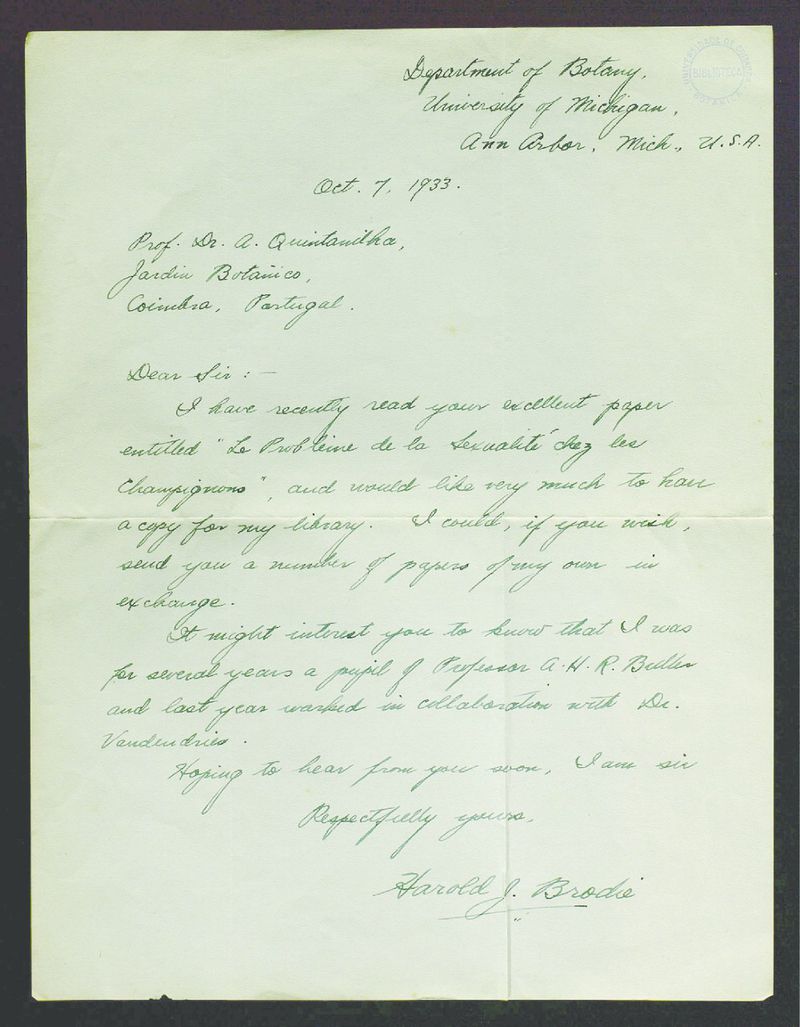 Department of Botany,
University of Michigan,
Ann Arbor, Mich., U.S.A.
UNIVERSIDADE DE COIMBRA
BIBLIOTECA
BOTANICA
Oct. 7, 1933.
Prof. Dr. A. Quintanilha,
Jardin Botañico,
Coimbra, Portugal.
Dear Sir :—
I have recently read your excellent paper
entitled "Le Problème de la Sexualité chez les
Champignons", and would like very much to have
a copy for my library. I could, if you wish,
send you a number of papers of my own in
exchange.
It might interest you to know that I was
for several years a pupil of Professor A. H. R. Buller
and last year worked in collaboration with Dr.
Vandendries.
Hoping to hear from you soon, I am sir
Respectfully yours,
Harold J. Brodie